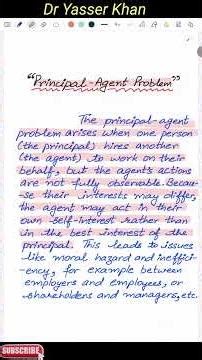 Dr Yasser Khan
"Principal-Agent Problem"
The principal-agent
problem arises when one person
(the principal) hires another
(the agent) to work on their
behalf, but the agent's actions
are not fully observable. Becau-
se their interests may differ,
the agent may act in their
own self-interest rather than
in the best interest of the
principal. This leads to issues
like moral hazard and ineffici-
ency, for example between
employers and employees, or
shareholders and managers, etc.
SUBSCRIBE